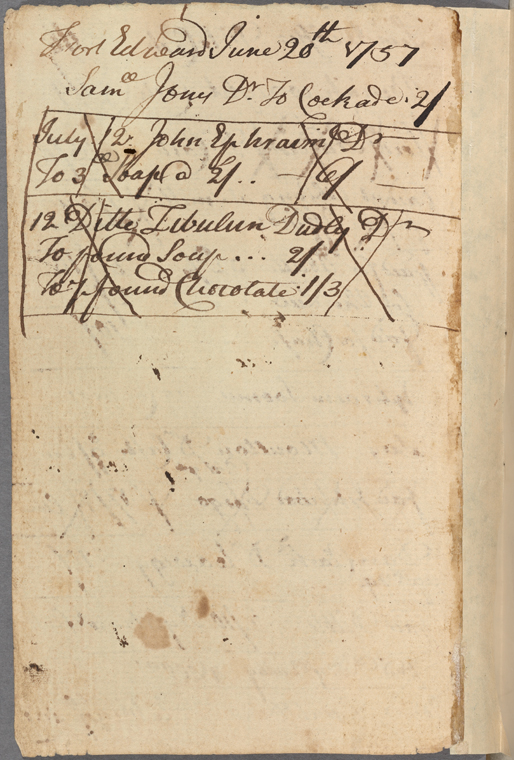 Fort Edward June 20th 1757
Samll Jony Dr To Cockade 2/
July 12 John Ephraim Dr
To 3 lb Soap a 2/.. — 6/
12 Ditto Zibulun Dudly Dr
To pound Soup ... 2/
To pound Chocolate 1/3